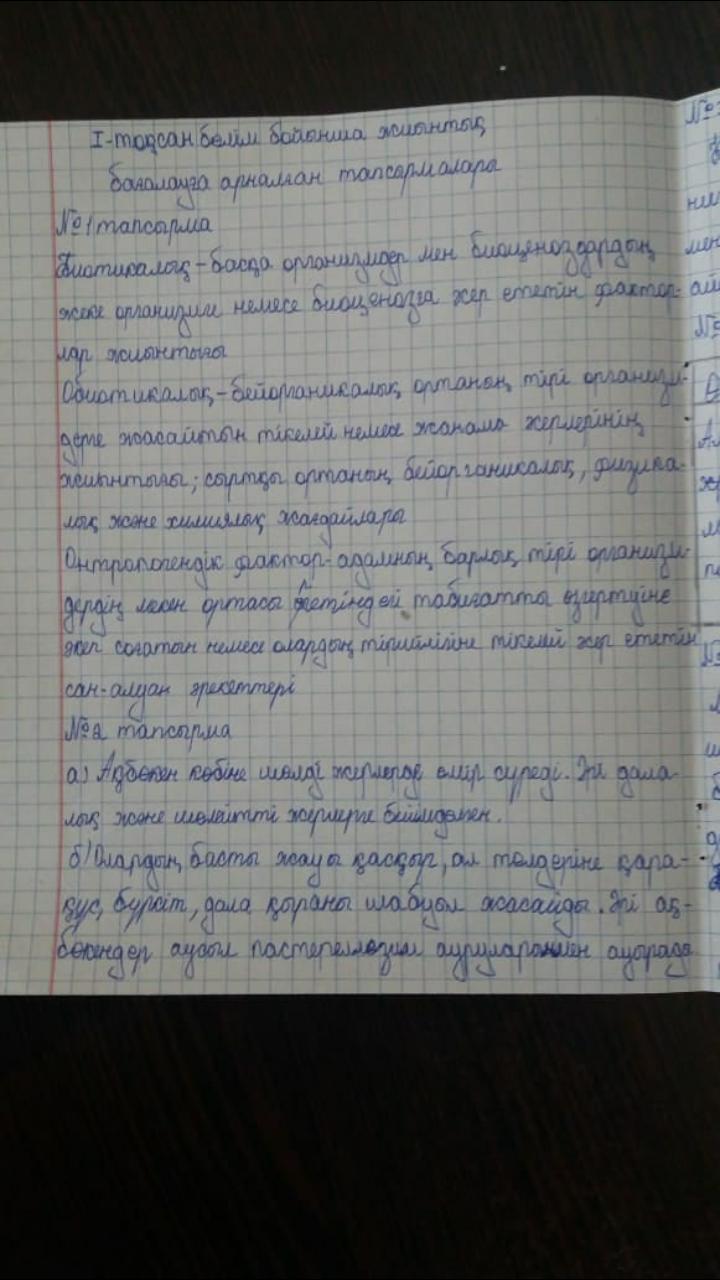 I-тоқсан бөлім бойынша жиынтық
бағалауға арналған тапсырмалары
№1 тапсырма
Биотикалық - басқа организмдер мен биоценоздардың
жеке организмге немесе биоценозға әсер ететін фактор-
лар жиынтығы
Обиотикалық - бейорганикалық ортаның тірі организм-
дерге жасайтын тікелей немесе жанама әсерлерінің
жиынтығы; сыртқы ортаның бейорганикалық, физика-
лық және химиялық жағдайлары
Онтропогендік фактор - адамның барлық тірі организм-
дердің мекен ортасы ретіндегі табиғатты өзгертуіне
әкеп соғатын немесе олардың тіршілігіне тікелей әсер ететін
сан-алуан әрекеттері
№2 тапсырма
а) Ақбөкен көбіне шөлді жерлерде өмір сүреді. Әрі дала-
лық және шөлейтті жерлерге бейімделген.
б) Олардың басты жауы қасқыр, ал төлдеріне қара-
құс, бүркіт, дала қыраны шабуыл жасайды. Әрі ақ-
бөкендер аусыл пастереллозом ауруларымен ауырады
№